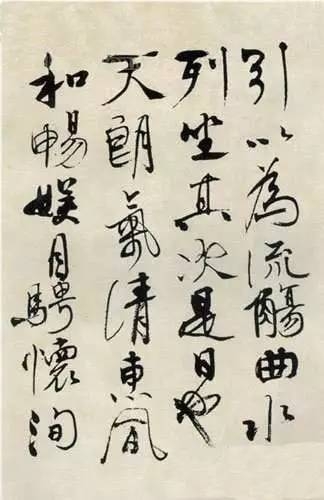 引以為流觴曲水
列坐其次是日也
天朗氣清惠風
和暢娛目騁懷洵